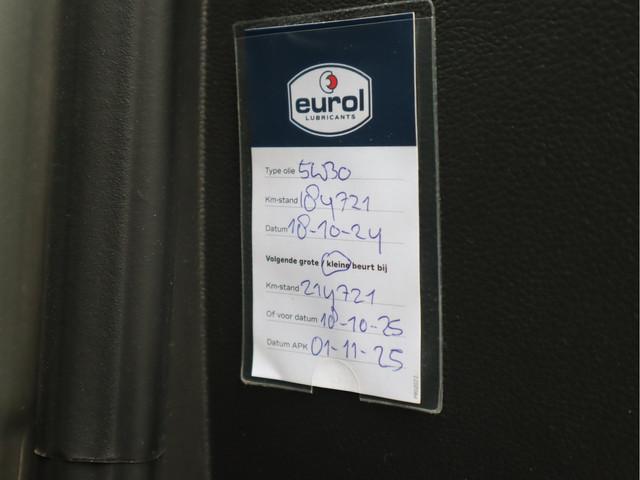 eurol
LUBRICANTS
Type olie 5W30
Km-stand 184721
Datum 18-10-24
Volgende grote / kleine beurt bij
Km-stand 214721
Of voor datum 18-10-25
Datum APK 01-11-25